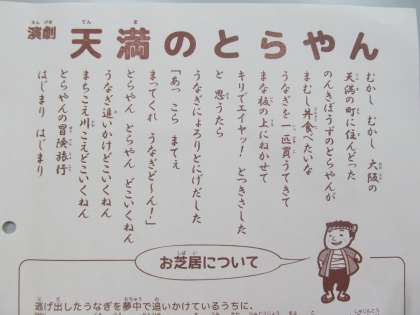 演劇 天満のとらやん
むかし むかし 大阪の
天満の町に住んどった
のんきぼうずのとらやんが
まむし丼食べたいな
うなぎを一匹買うてきて
まな板の上にねかせて
キリでエイヤッ！とつきさした
と 思うたら
うなぎにょろりとにげだした
「あっ こら まてぇ
まってくれ うなぎど～ん！」
とらやん とらやん どこいくねん
うなぎ追いかけどこいくねん
まちこえ川こえどこいくねん
とらやんの冒険旅行
はじまり はじまり
お芝居について
逃げ出したうなぎを夢中で追いかけているうちに、